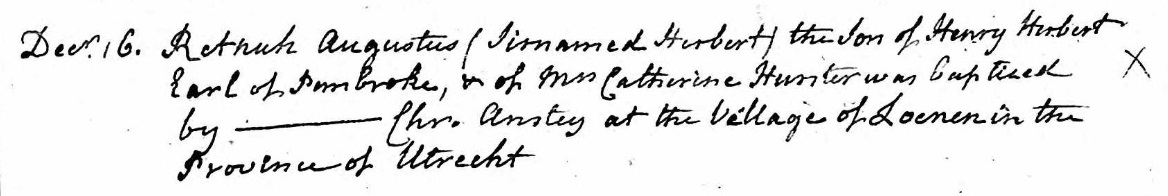 Decr. 16. Retnuh Augustus (Sirnamed Herbert) the Son of Henry Herbert
Earl of Pembroke, & of Mrs Catherine Hunter was baptised X
by ———— Chr. Anstey at the Village of Loenen in the
Province of Utrecht